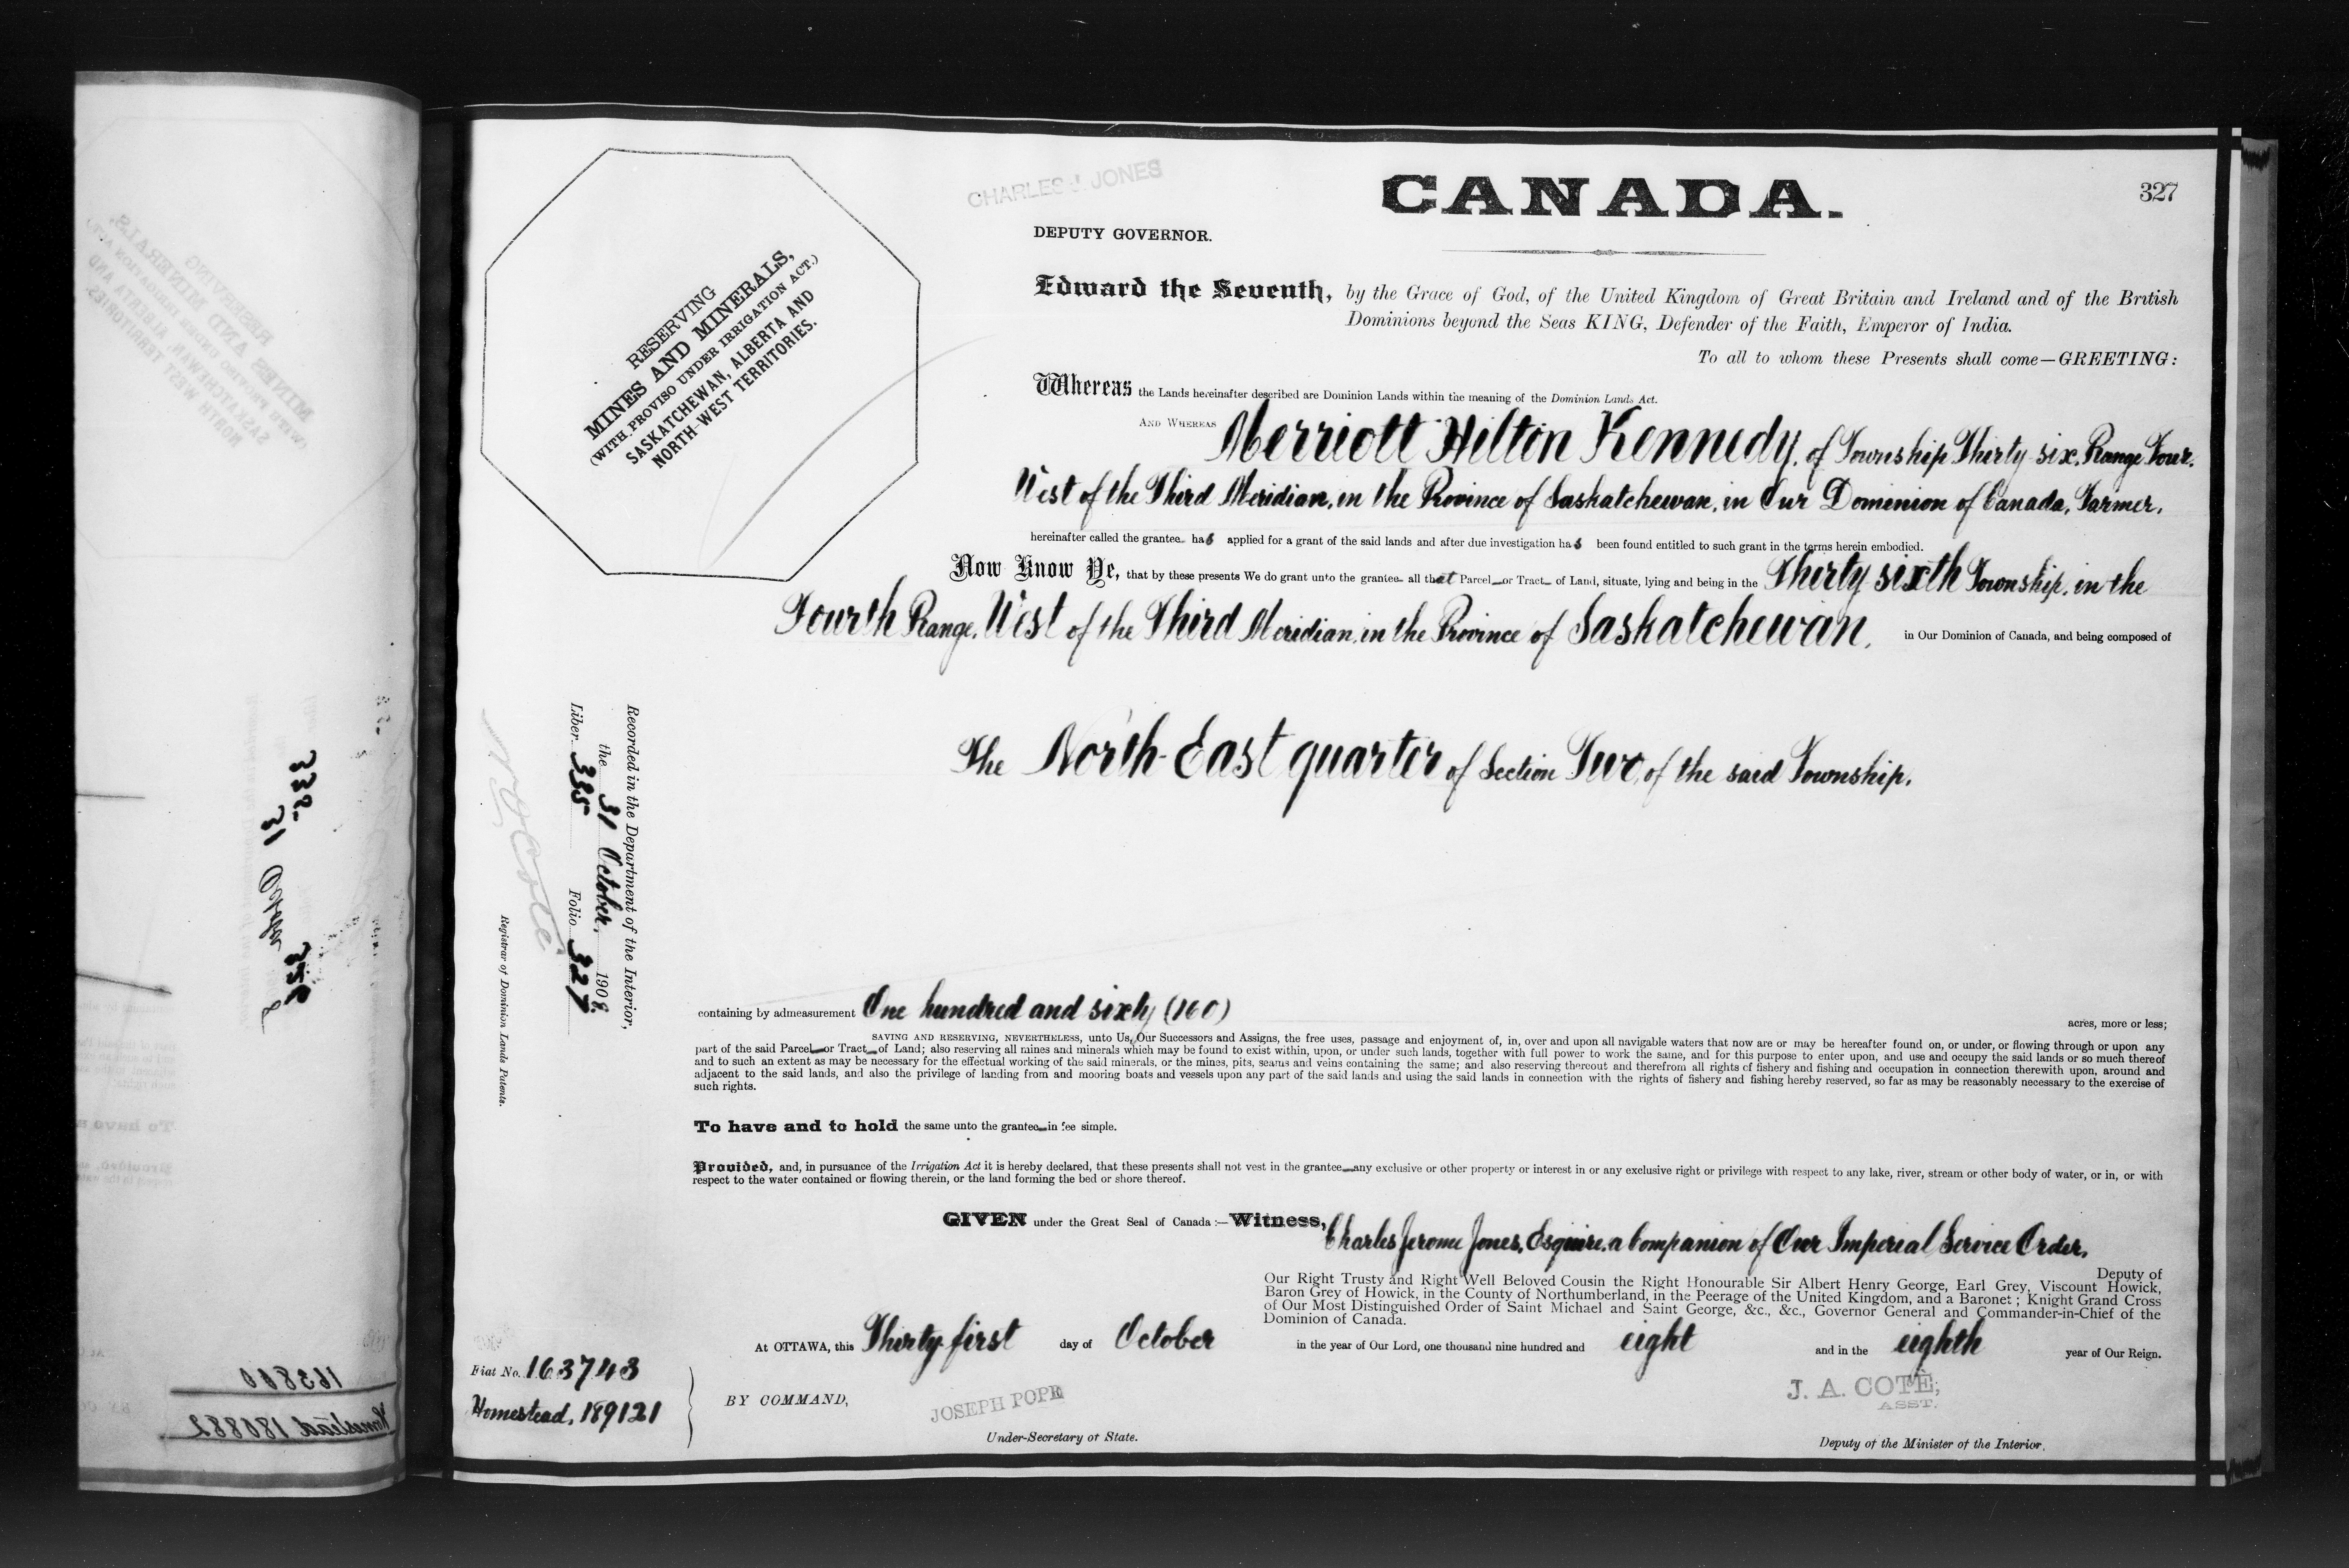 CHARLES J. JONES
CANADA.
327
DEPUTY GOVERNOR.
RESERVING
MINES AND MINERALS,
(WITH PROVISO UNDER IRRIGATION ACT.)
SASKATCHEWAN, ALBERTA AND
NORTH-WEST TERRITORIES.
Edward the Seventh, by the Grace of God, of the United Kingdom of Great Britain and Ireland and of the British
Dominions beyond the Seas KING, Defender of the Faith, Emperor of India.
To all to whom these Presents shall come—GREETING:
Whereas the Lands hereinafter described are Dominion Lands within the meaning of the Dominion Lands Act.
AND WHEREAS Merriott Hilton Kennedy, of Township Thirty six, Range Four,
West of the Third Meridian, in the Province of Saskatchewan, in Our Dominion of Canada, Farmer,
hereinafter called the grantee has applied for a grant of the said lands and after due investigation has been found entitled to such grant in the terms herein embodied.
Now Know Ye, that by these presents We do grant unto the grantee all that Parcel or Tract of Land, situate, lying and being in the Thirty sixth Township, in the
Fourth Range, West of the Third Meridian, in the Province of Saskatchewan, in Our Dominion of Canada, and being composed of
The North-East quarter of Section Two, of the said Township.
Recorded in the Department of the Interior,
the 31 October, 1908.
Liber 335 Folio 327
Registrar of Dominion Lands Patents.
containing by admeasurement One hundred and sixty (160) acres, more or less;
SAVING AND RESERVING, NEVERTHELESS, unto Us, Our Successors and Assigns, the free uses, passage and enjoyment of, in, over and upon all navigable waters that now are or may be hereafter found on, or under, or flowing through or upon any
part of the said Parcel or Tract of Land; also reserving all mines and minerals which may be found to exist within, upon, or under such lands, together with full power to work the same, and for this purpose to enter upon, and use and occupy the said lands or so much thereof
and to such an extent as may be necessary for the effectual working of the said minerals, or the mines, pits, seams and veins containing the same; and also reserving thereout and therefrom all rights of fishery and fishing and occupation in connection therewith upon, around and
adjacent to the said lands, and also the privilege of landing from and mooring boats and vessels upon any part of the said lands and using the said lands in connection with the rights of fishery and fishing hereby reserved, so far as may be reasonably necessary to the exercise of
such rights.
To have and to hold the same unto the grantee in fee simple.
Provided, and, in pursuance of the Irrigation Act it is hereby declared, that these presents shall not vest in the grantee any exclusive or other property or interest in or any exclusive right or privilege with respect to any lake, river, stream or other body of water, or in, or with
respect to the water contained or flowing therein, or the land forming the bed or shore thereof.
GIVEN under the Great Seal of Canada:—Witness, Charles Jerome Jones, Esquire, a Companion of Our Imperial Service Order,
Deputy of
Our Right Trusty and Right Well Beloved Cousin the Right Honourable Sir Albert Henry George, Earl Grey, Viscount Howick,
Baron Grey of Howick, in the County of Northumberland, in the Peerage of the United Kingdom, and a Baronet; Knight Grand Cross
of Our Most Distinguished Order of Saint Michael and Saint George, &c., &c., Governor General and Commander-in-Chief of the
Dominion of Canada.
At OTTAWA, this Thirty-first day of October in the year of Our Lord, one thousand nine hundred and eight and in the eighth year of Our Reign.
Fiat No. 163743
Homestead, 189121
BY COMMAND,
JOSEPH POPE
Under-Secretary of State.
J. A. COTÉ,
ASST.
Deputy of the Minister of the Interior.
163800
Homestead 180882